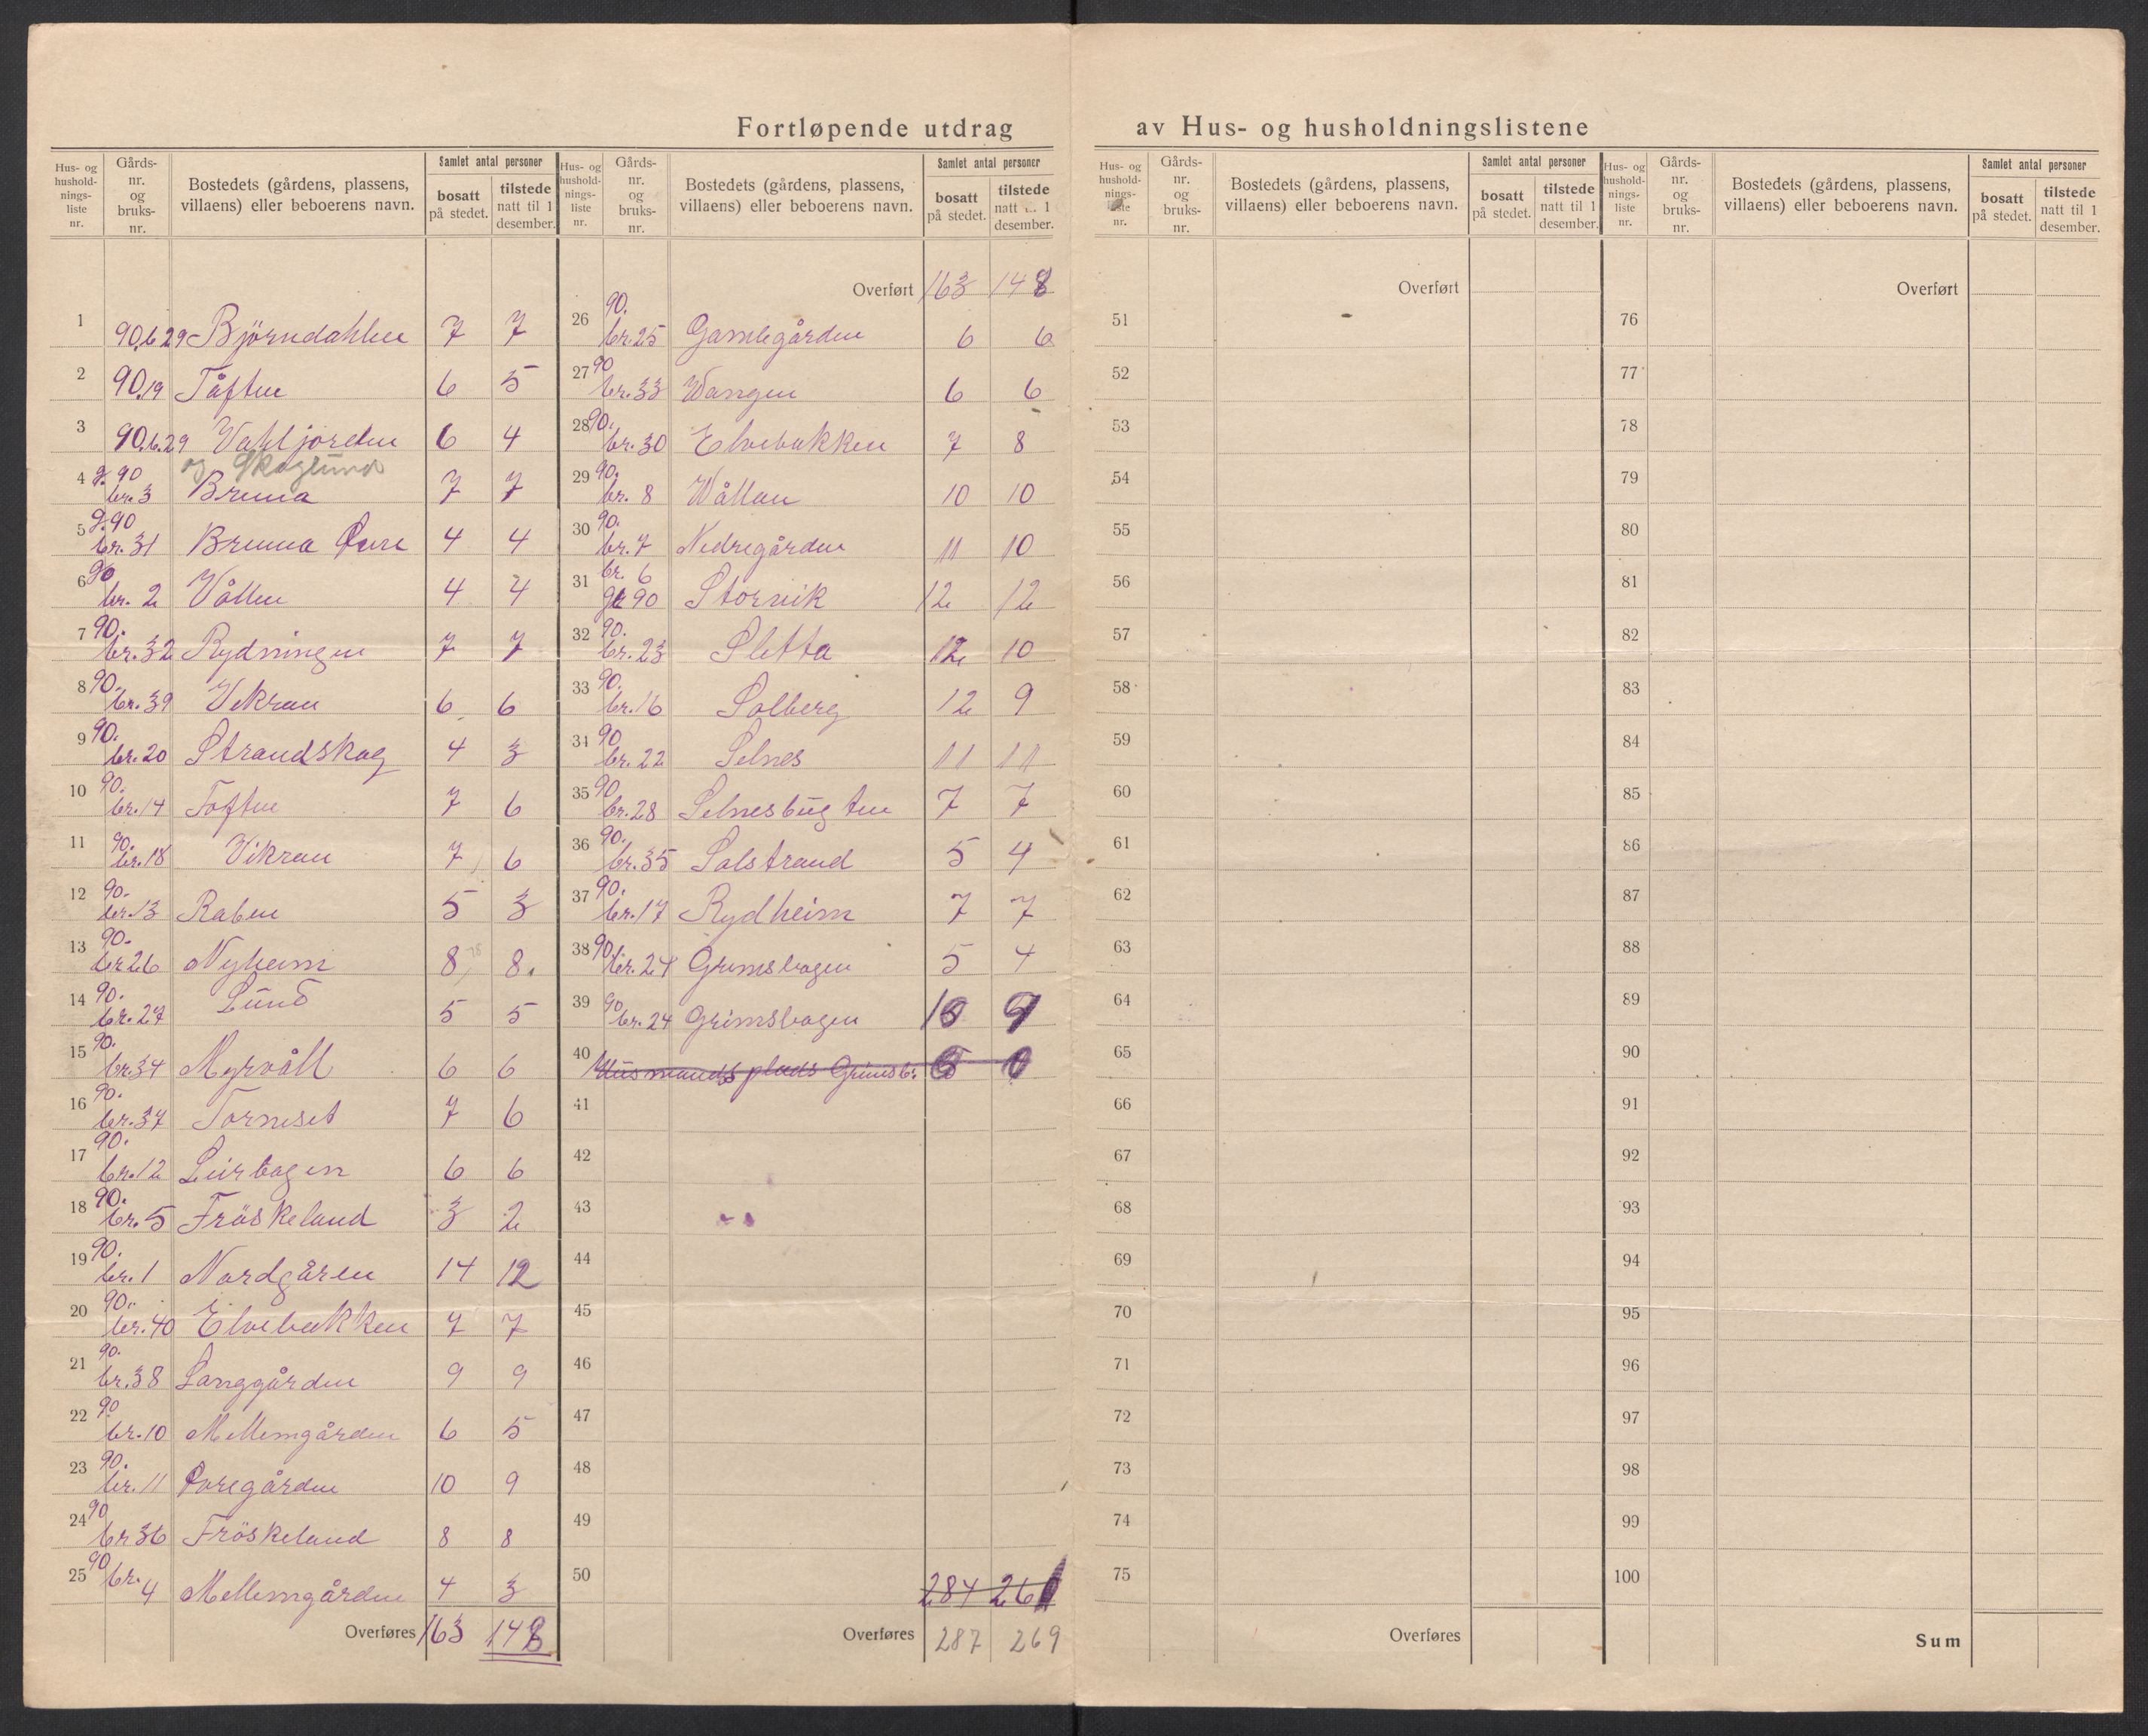 Fortløpende utdrag av Hus- og husholdningslistene
Hus- og husholdnings-liste nr. Gårds-nr. og bruks-nr. Bostedets (gårdens, plassens, villaens) eller beboerens navn. Samlet antal personer bosatt på stedet. tilstede natt til 1 desember.
1 90.b.29 Björndahlen 7 7
2 90.19 Tåften 6 5
3 90.b.29 Vahljorden 6 4
og Skoglund
4 g. 90 br. 3 Brenna 7 7
5 g. 90 br. 31 Brenna Øvre 4 4
6 90 br. 2 Vållen 4 4
7 90. br. 32 Rydningen 7 7
8 90. br. 39 Vikran 6 6
9 90. br. 20 Strandskog 4 3
10 90. br. 14 Toften 7 6
11 90. br. 18 Vikran 7 6
12 90. br. 13 Raben 5 3
13 90. br 26 Nyheim 8 8
14 90. br. 27 Lund 5 5
15 90. br. 34 Myrvåll 6 6
16 90. br. 37 Torneset 7 6
17 90. br. 12 Leirbogen 6 6
18 90. br. 5 Fröskeland 3 2
19 90. br. 1 Nordgåren 14 12
20 90. br. 40 Elvebakken 7 7
21 90. br. 38 Langgården 9 9
22 90 br. 10 Mellemgården 6 5
23 90. br. 11 Øvregården 10 9
24 90 br 36 Fröskeland 8 8
25 90 br. 4 Mellemgården 4 3
Overføres 163 148
Hus- og husholdnings-liste nr. Gårds-nr. og bruks-nr. Bostedets (gårdens, plassens, villaens) eller beboerens navn. Samlet antal personer bosatt på stedet. tilstede natt 1 desember.
Overført 163 148
26 90. br. 25 Gamlegården 6 6
27 90 br. 33 Wangen 6 6
28 90. br. 30 Elvebakken 7 8
29 90. br. 8 Wållan 10 10
30 90. br. 7 Nedregården 11 10
31 br. 6 90 Storvik 12 12
32 90. br. 23 Sletta 12 10
33 90. br. 16 Solberg 12 9
34 90 br. 22 Selnes 11 11
35 90 br. 28 Selnesbugten 7 7
36 90. br. 35 Solstrand 5 4
37 90. br. 17 Rydheim 7 7
38 90 br. 24 Grimsbogen 5 4
39 90 br. 24 Grimsbogen
40 Husmandsplads Grimsb.
41
42
43
44
45
46
47
48
49
50 284
Overføres 287 269
Hus- og husholdnings-liste nr. Gårds-nr. og bruks-nr. Bostedets (gårdens, plassens, villaens) eller beboerens navn. Samlet antal personer bosatt på stedet. tilstede natt til 1 desember.
Overført
51
52
53
54
55
56
57
58
59
60
61
62
63
64
65
66
67
68
69
70
71
72
73
74
75
Overføres
Hus- og husholdnings-liste nr. Gårds-nr. og bruks-nr. Bostedets (gårdens, plassens, villaens) eller beboerens navn. Samlet antal personer bosatt på stedet. tilstede natt til 1 desember.
Overført
76
77
78
79
80
81
82
83
84
85
86
87
88
89
90
91
92
93
94
95
96
97
98
99
100
Sum